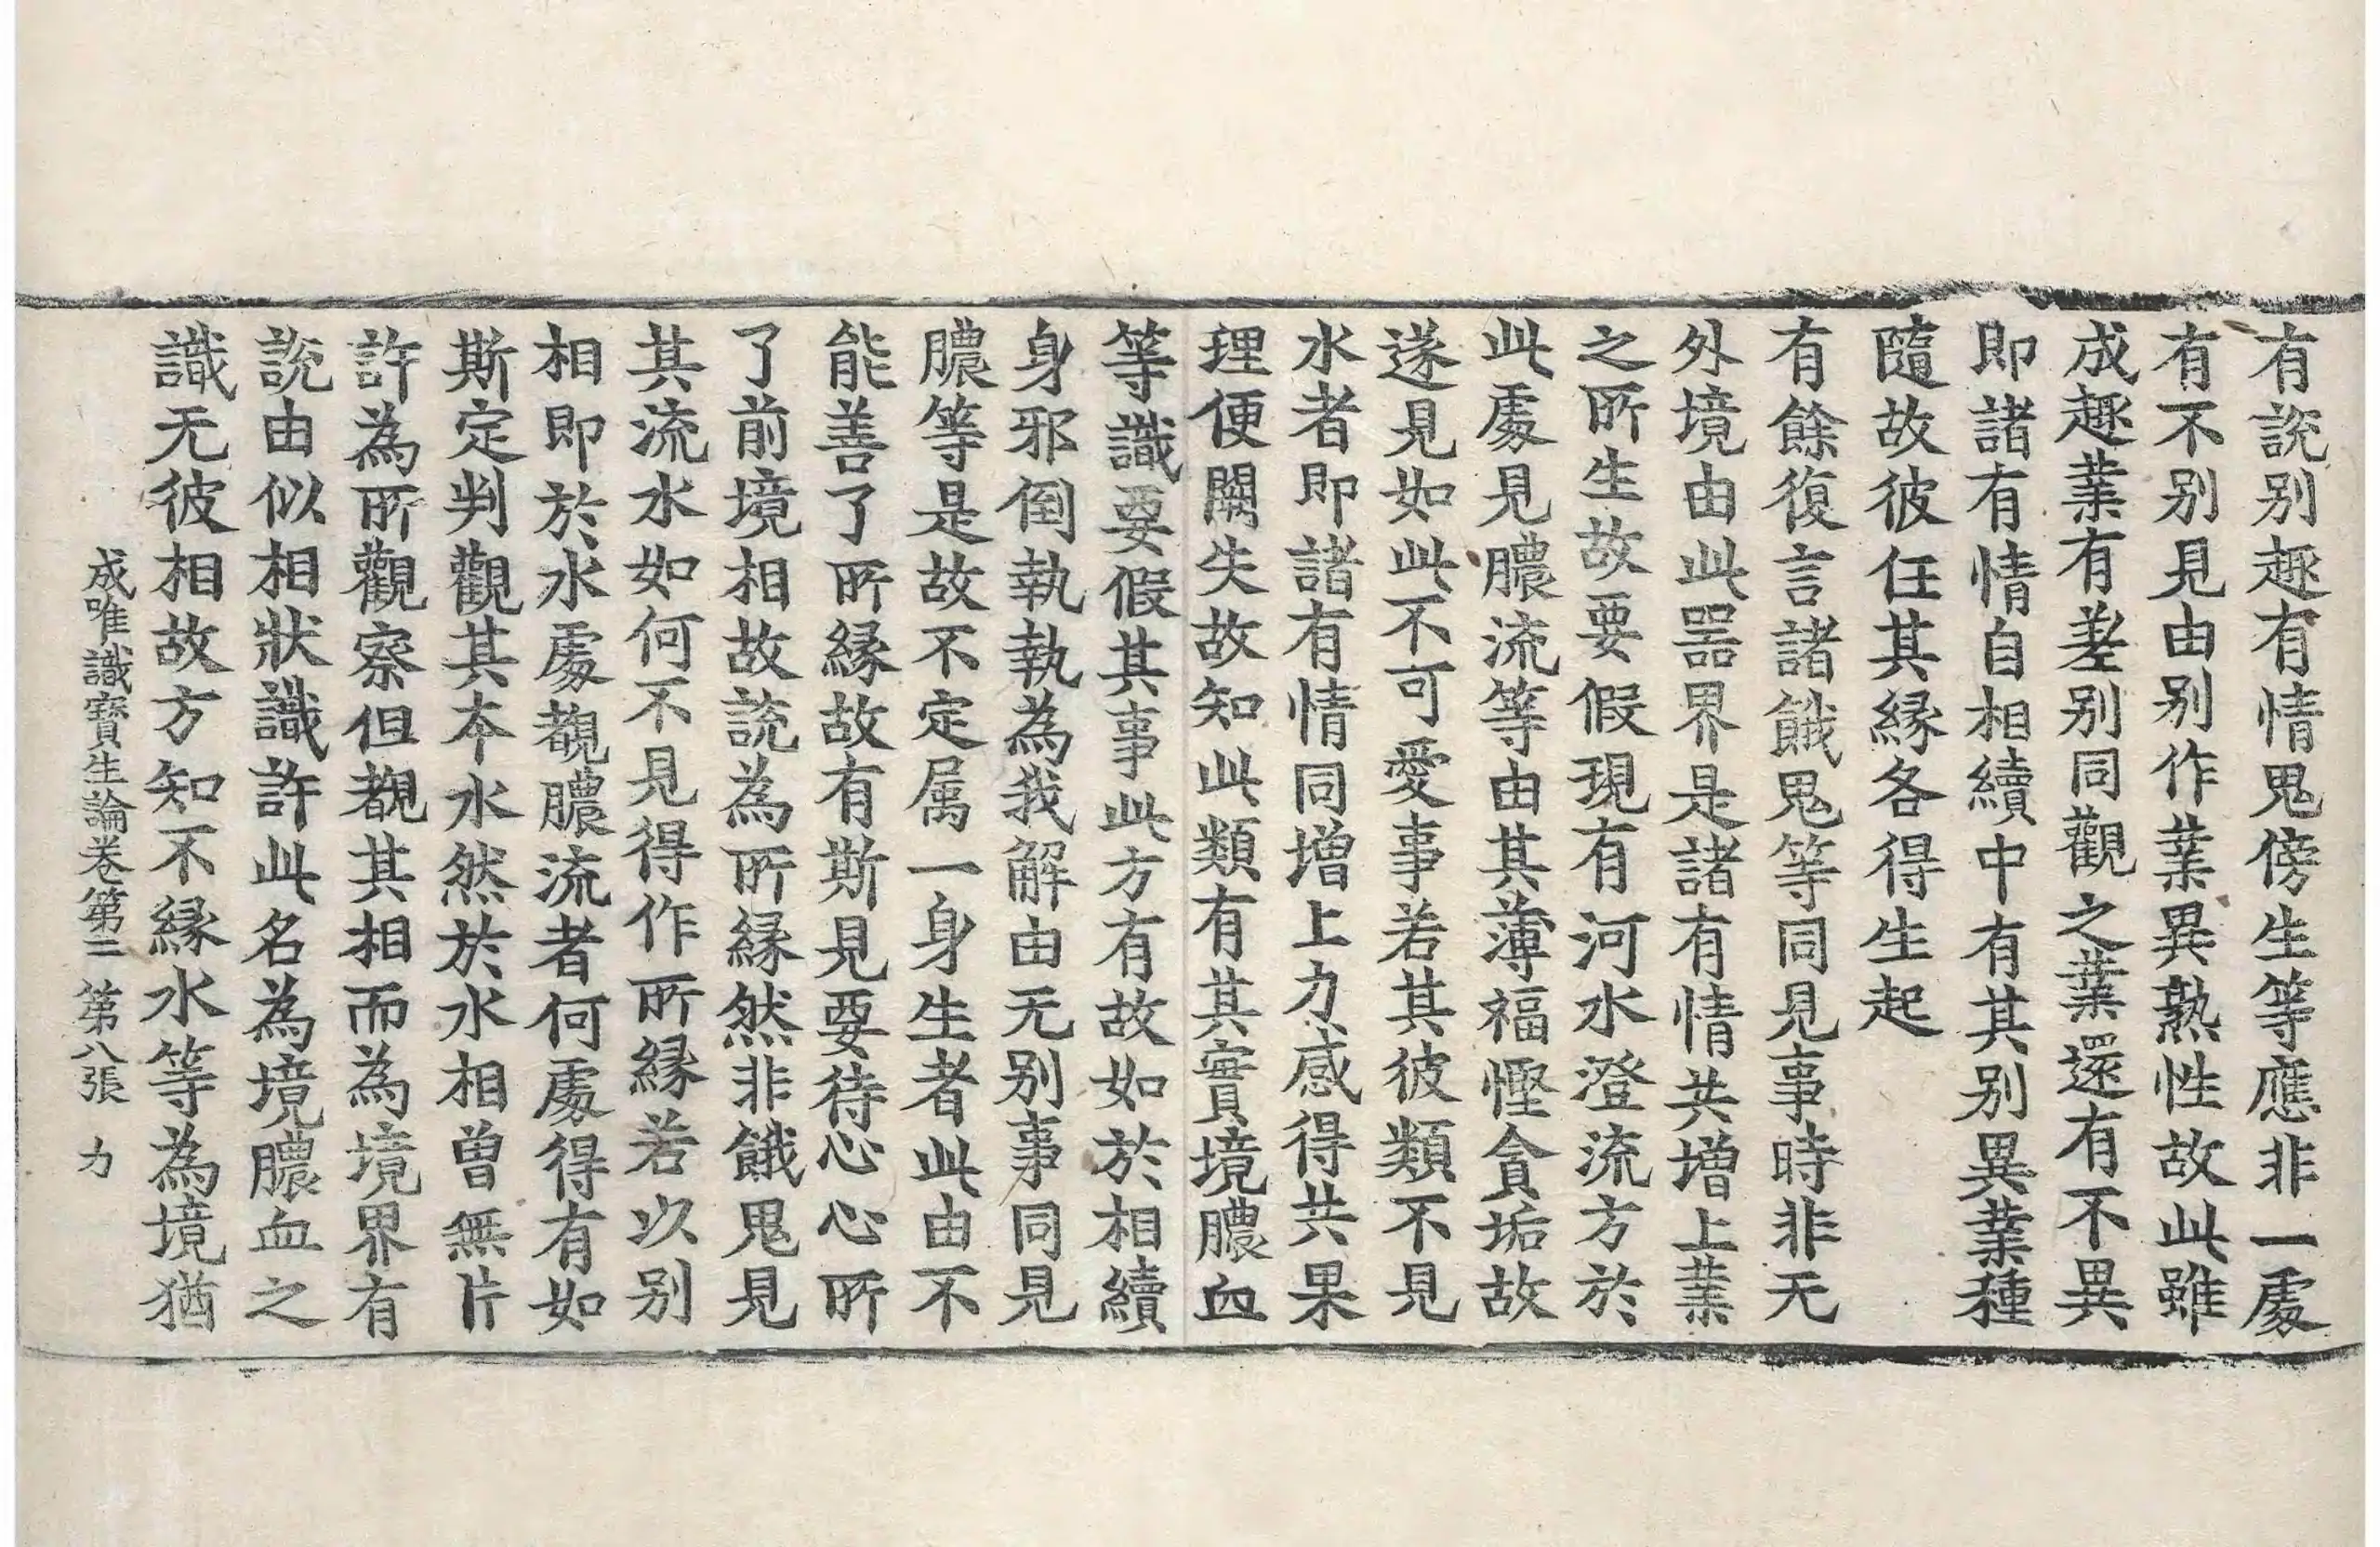 有說别趣有情鬼傍生等應非一處
有不别見由别作業異熟性故此雖
成趣業有差别同觀之業還有不異
即諸有情自相續中有其别異業種
隨故彼任其縁各得生起
有餘復言諸餓鬼等同見事時非无
外境由此噐界是諸有情共增上業
之所生故要假現有河水澄流方於
此處見膿流等由其薄福慳貪垢故
遂見如此不可愛事若其彼類不見
水者即諸有情同增上力感得共果
理便闕失故知此類有其實境膿血
等識要假其事此方有故如於相續
身邪倒執執為我解由无别事同見
膿等是故不定属一身生者此由不
能善了所縁故有斯見要待心心所
了前境相故說為所縁然非餓鬼見
其流水如何不見得作所縁若以别
相即於水處覩膿流者何處得有如
斯定判觀其本水然於水相曽無片
許為所觀察但覩其相而為境界有
說由似相狀識許此名為境膿血之
識无彼相故方知不縁水等為境猶
成唯識寳生論卷第二　第八張　力